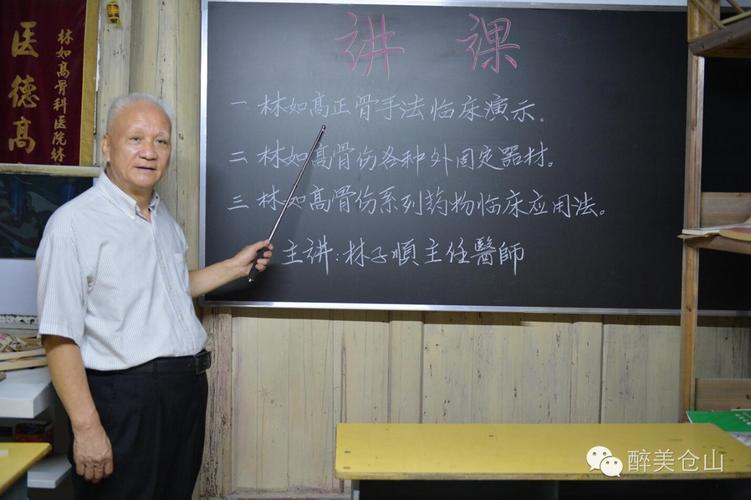 医德高
林如高骨科医院林
讲课
一 林如高正骨手法临床演示.
二 林如高骨伤各种外固定器材。
三 林如高骨伤系列药物临床应用法。
主讲:林子順主任醫師
醉美仓山